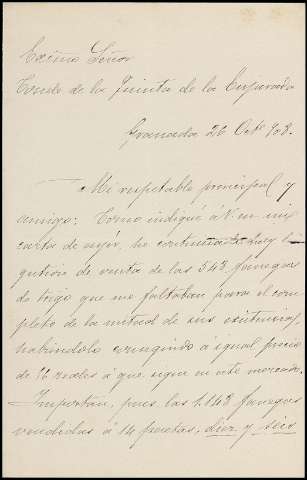 Excmo Señor
Conde de la Quinta de la Enjarada
Granada 26 Octe 903.
Mi respetable principal y
amigo: Como indiqué á V. en mi
carta de ayer, he continuado hoy la
gestion de venta de las 543 fanegas
de trigo que me faltaban para el com
pleto de la mitad de sus existencias
habiéndolo conseguido á igual precio
de 56 reales á que sigue en este mercado.
Importan, pues las 1.143 fanegas
vendidas á 14 pesetas, diez y seis